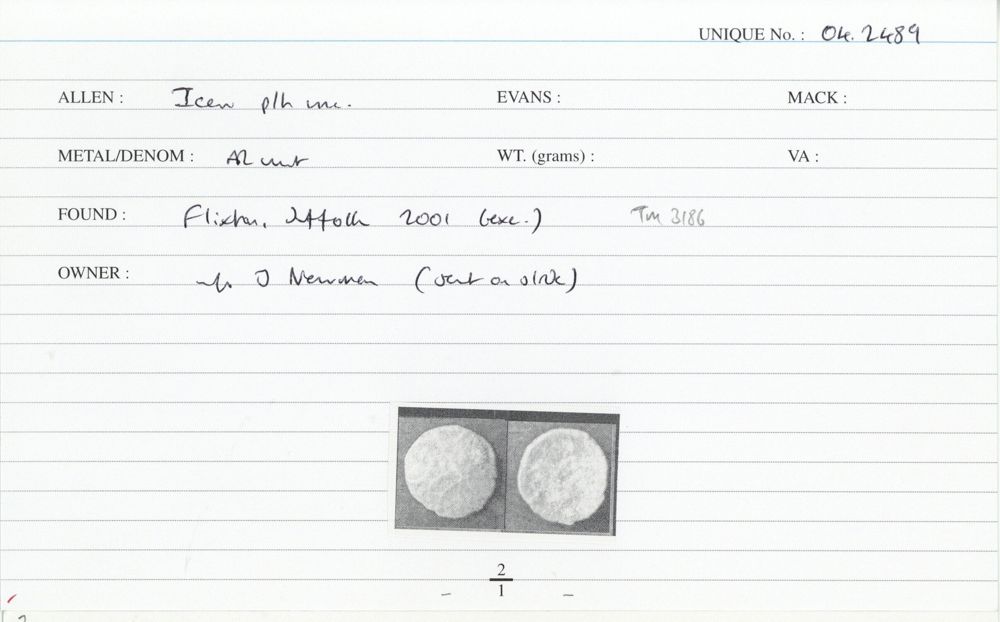 UNIQUE No. : 04. 2489
ALLEN : Icen EVANS : MACK :
METAL/DENOM : AR unit WT. (grams) : VA :
FOUND : Flixton, Suffolk 2001 (exc.) TM 3186
OWNER : J Newman (sent on
2
1